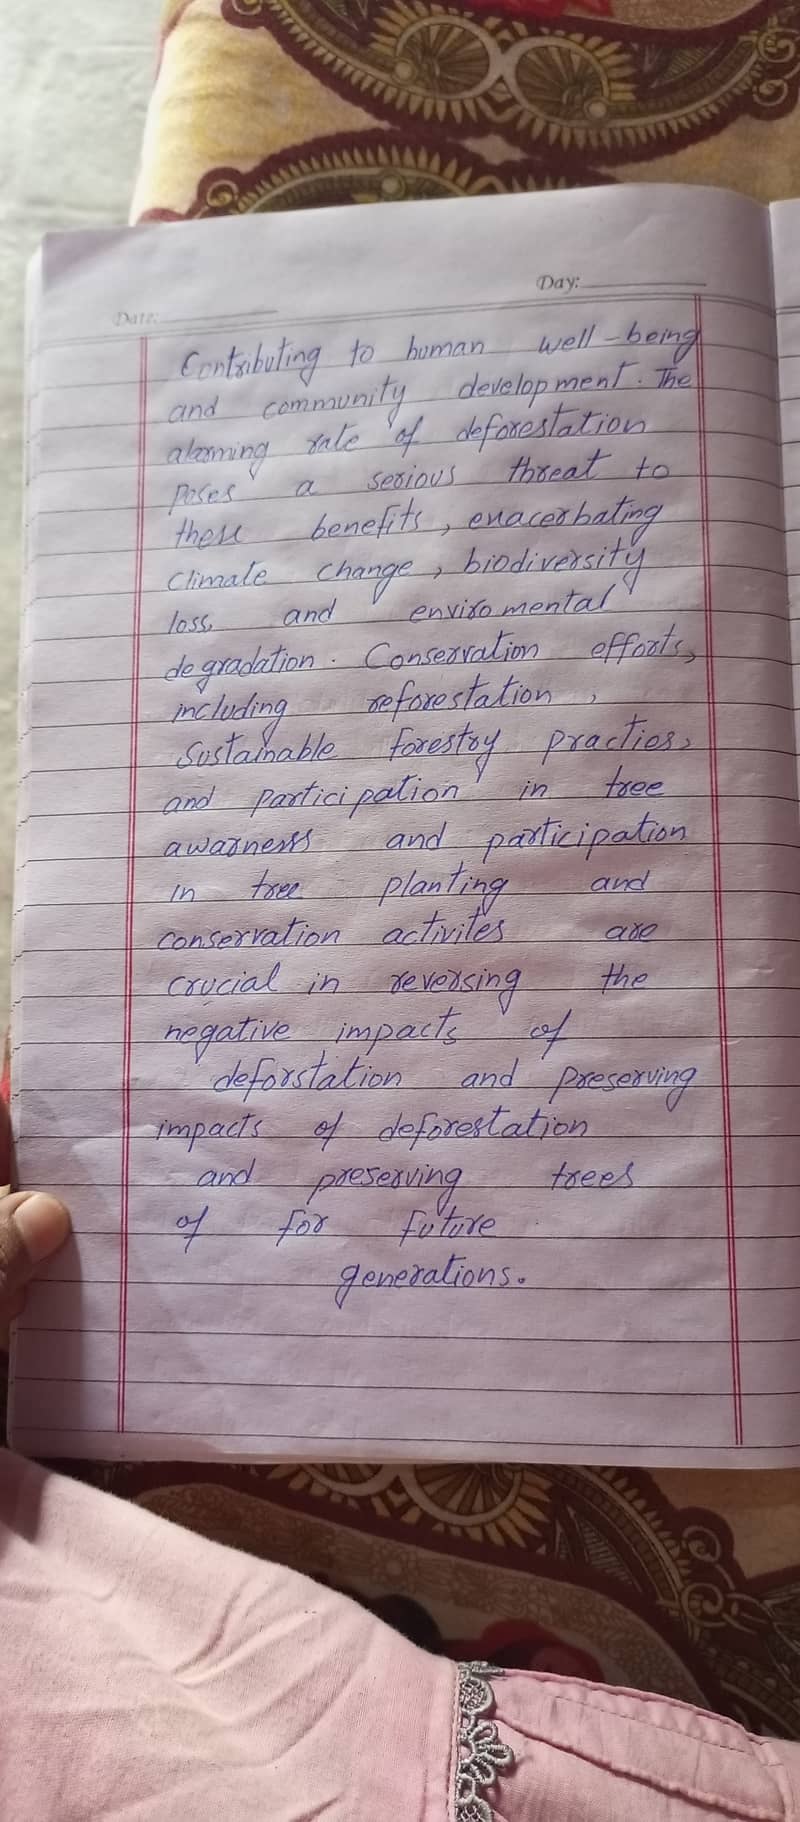 Day:
Date:
Contributing to human well-being
and community development. The
alarming rate of deforestation
poses a serious threat to
these benefits, enacerbating
climate change, biodiversity
loss, and enviromental
degradation. Conservation efforts,
including reforestation,
Sustainable forestry practies,
and participation in tree
awarness and participation
in tree planting and
conservation activites are
crucial in reversing the
negative impacts of
deforstation and preserving
impacts of deforestation
and preserving trees
of for future
generations.